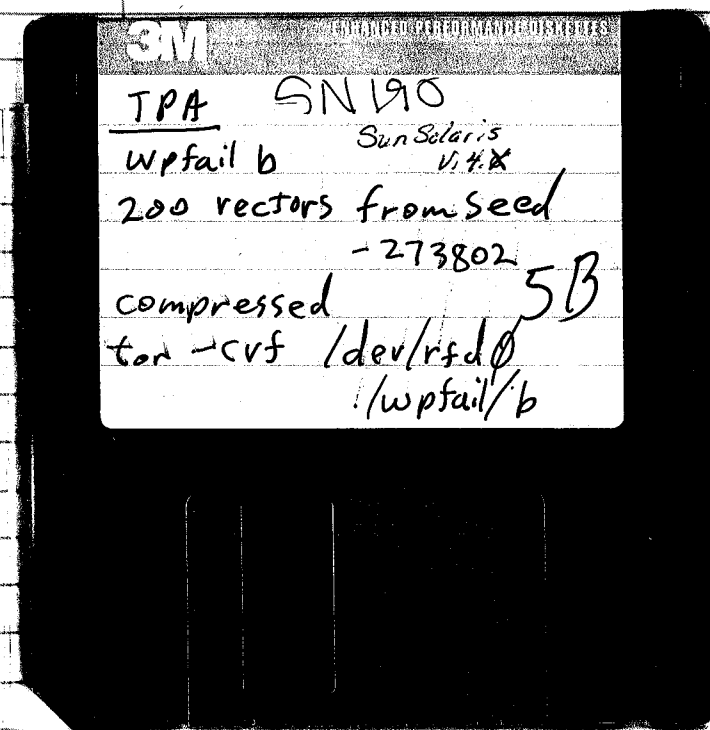 3M ENHANCED PERFORMANCE DISKETTES
TPA SN190
Sun Solaris
wpfail b V. 4.X
200 vectors from seed
-273802
compressed 5B
tar -cvf /dev/rfd0
./wpfail/b